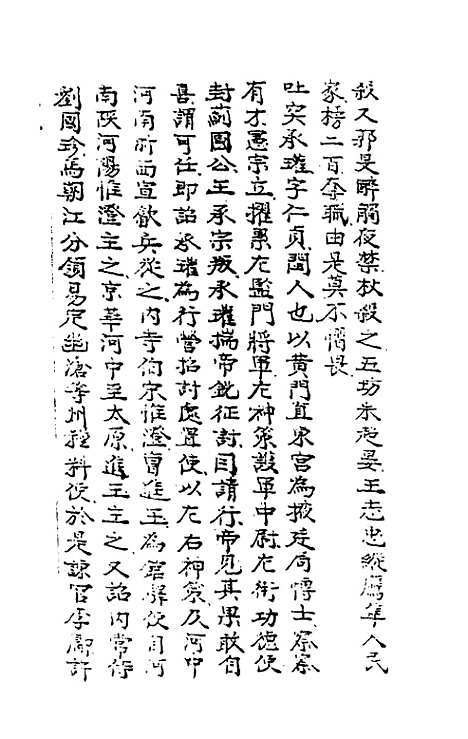 殺又郭旻醉觸夜禁杖殺之五坊朱超晏王志忠縱鷹隼入民
家榜二百奪職由是莫不慴畏
吐突承璀字仁貞閩人也以黃門直東宮為掖廷局博士察察
有才憲宗立擢累左監門將軍左神策護軍中尉左街功德使
封薊國公王承宗叛承璀揣帝銳征討因請行帝見其果敢自
喜謂可任即詔承璀為行營招討處置使以左右神策及河中
河南浙西宣歙兵從之內寺伯宋惟澄曹進玉為館驛使自河
南陝河陽惟澄主之京華河中至太原進玉主之又詔內常侍
劉國珍馬朝江分領易定幽滄等州糧料使於是諫官李鄘許